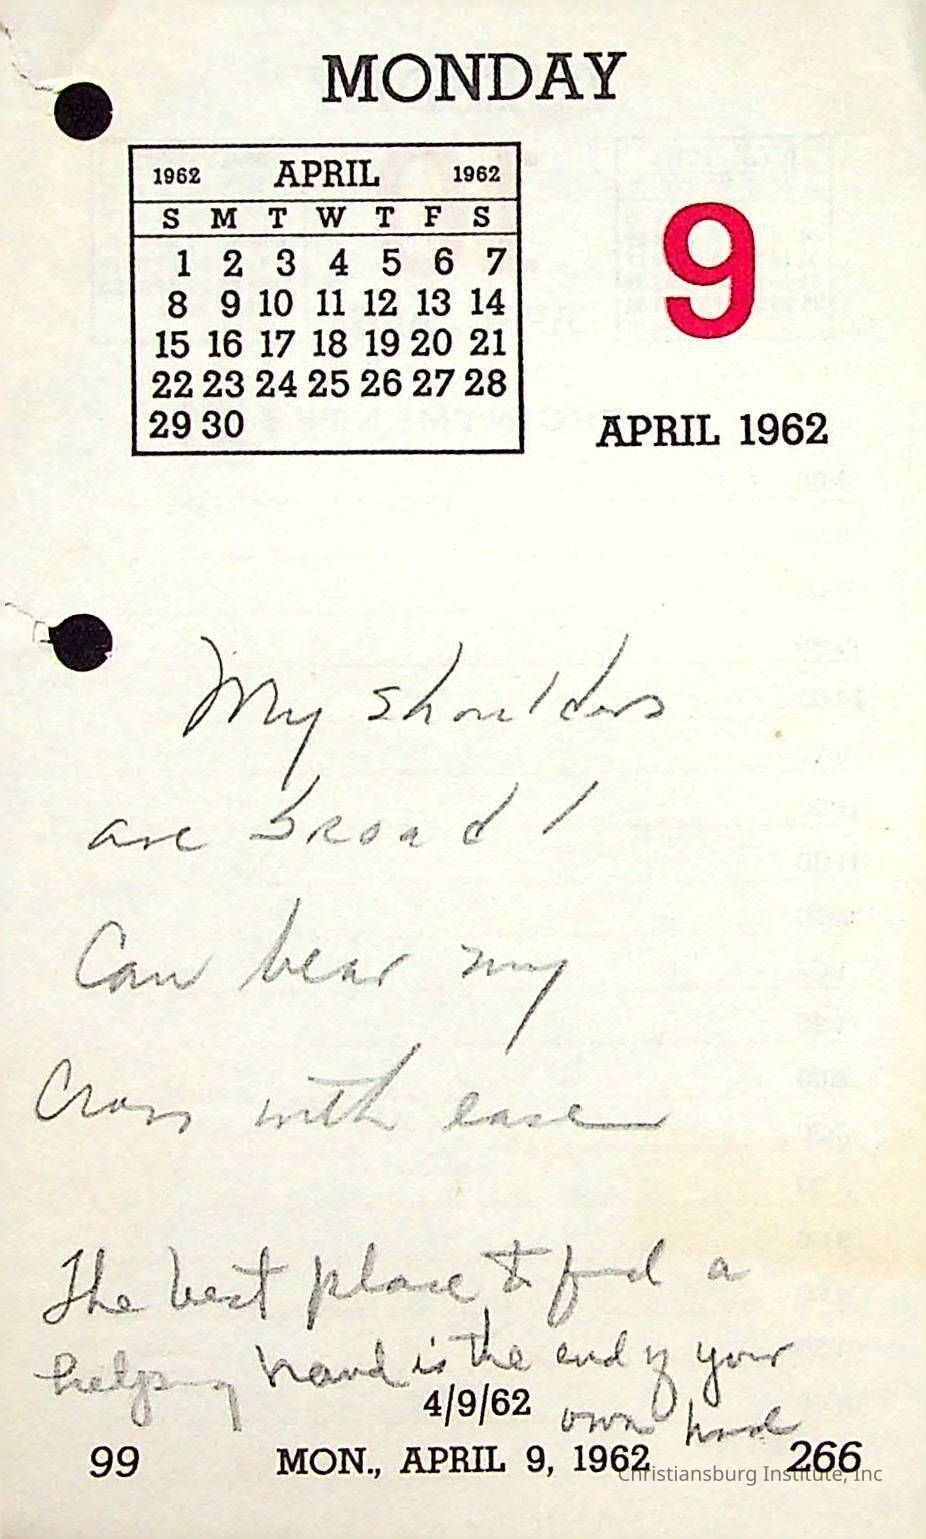 MONDAY
1962 APRIL 1962
S M T W T F S
1 2 3 4 5 6 7
8 9 10 11 12 13 14
15 16 17 18 19 20 21
22 23 24 25 26 27 28
29 30
9
APRIL 1962
My shoulders
are broad I
Can bear my
Cross with ease
The best place to find a
helping hand is the end of your
4/9/62
own hand
99 MON., APRIL 9, 1962 266
Christiansburg Institute, Inc